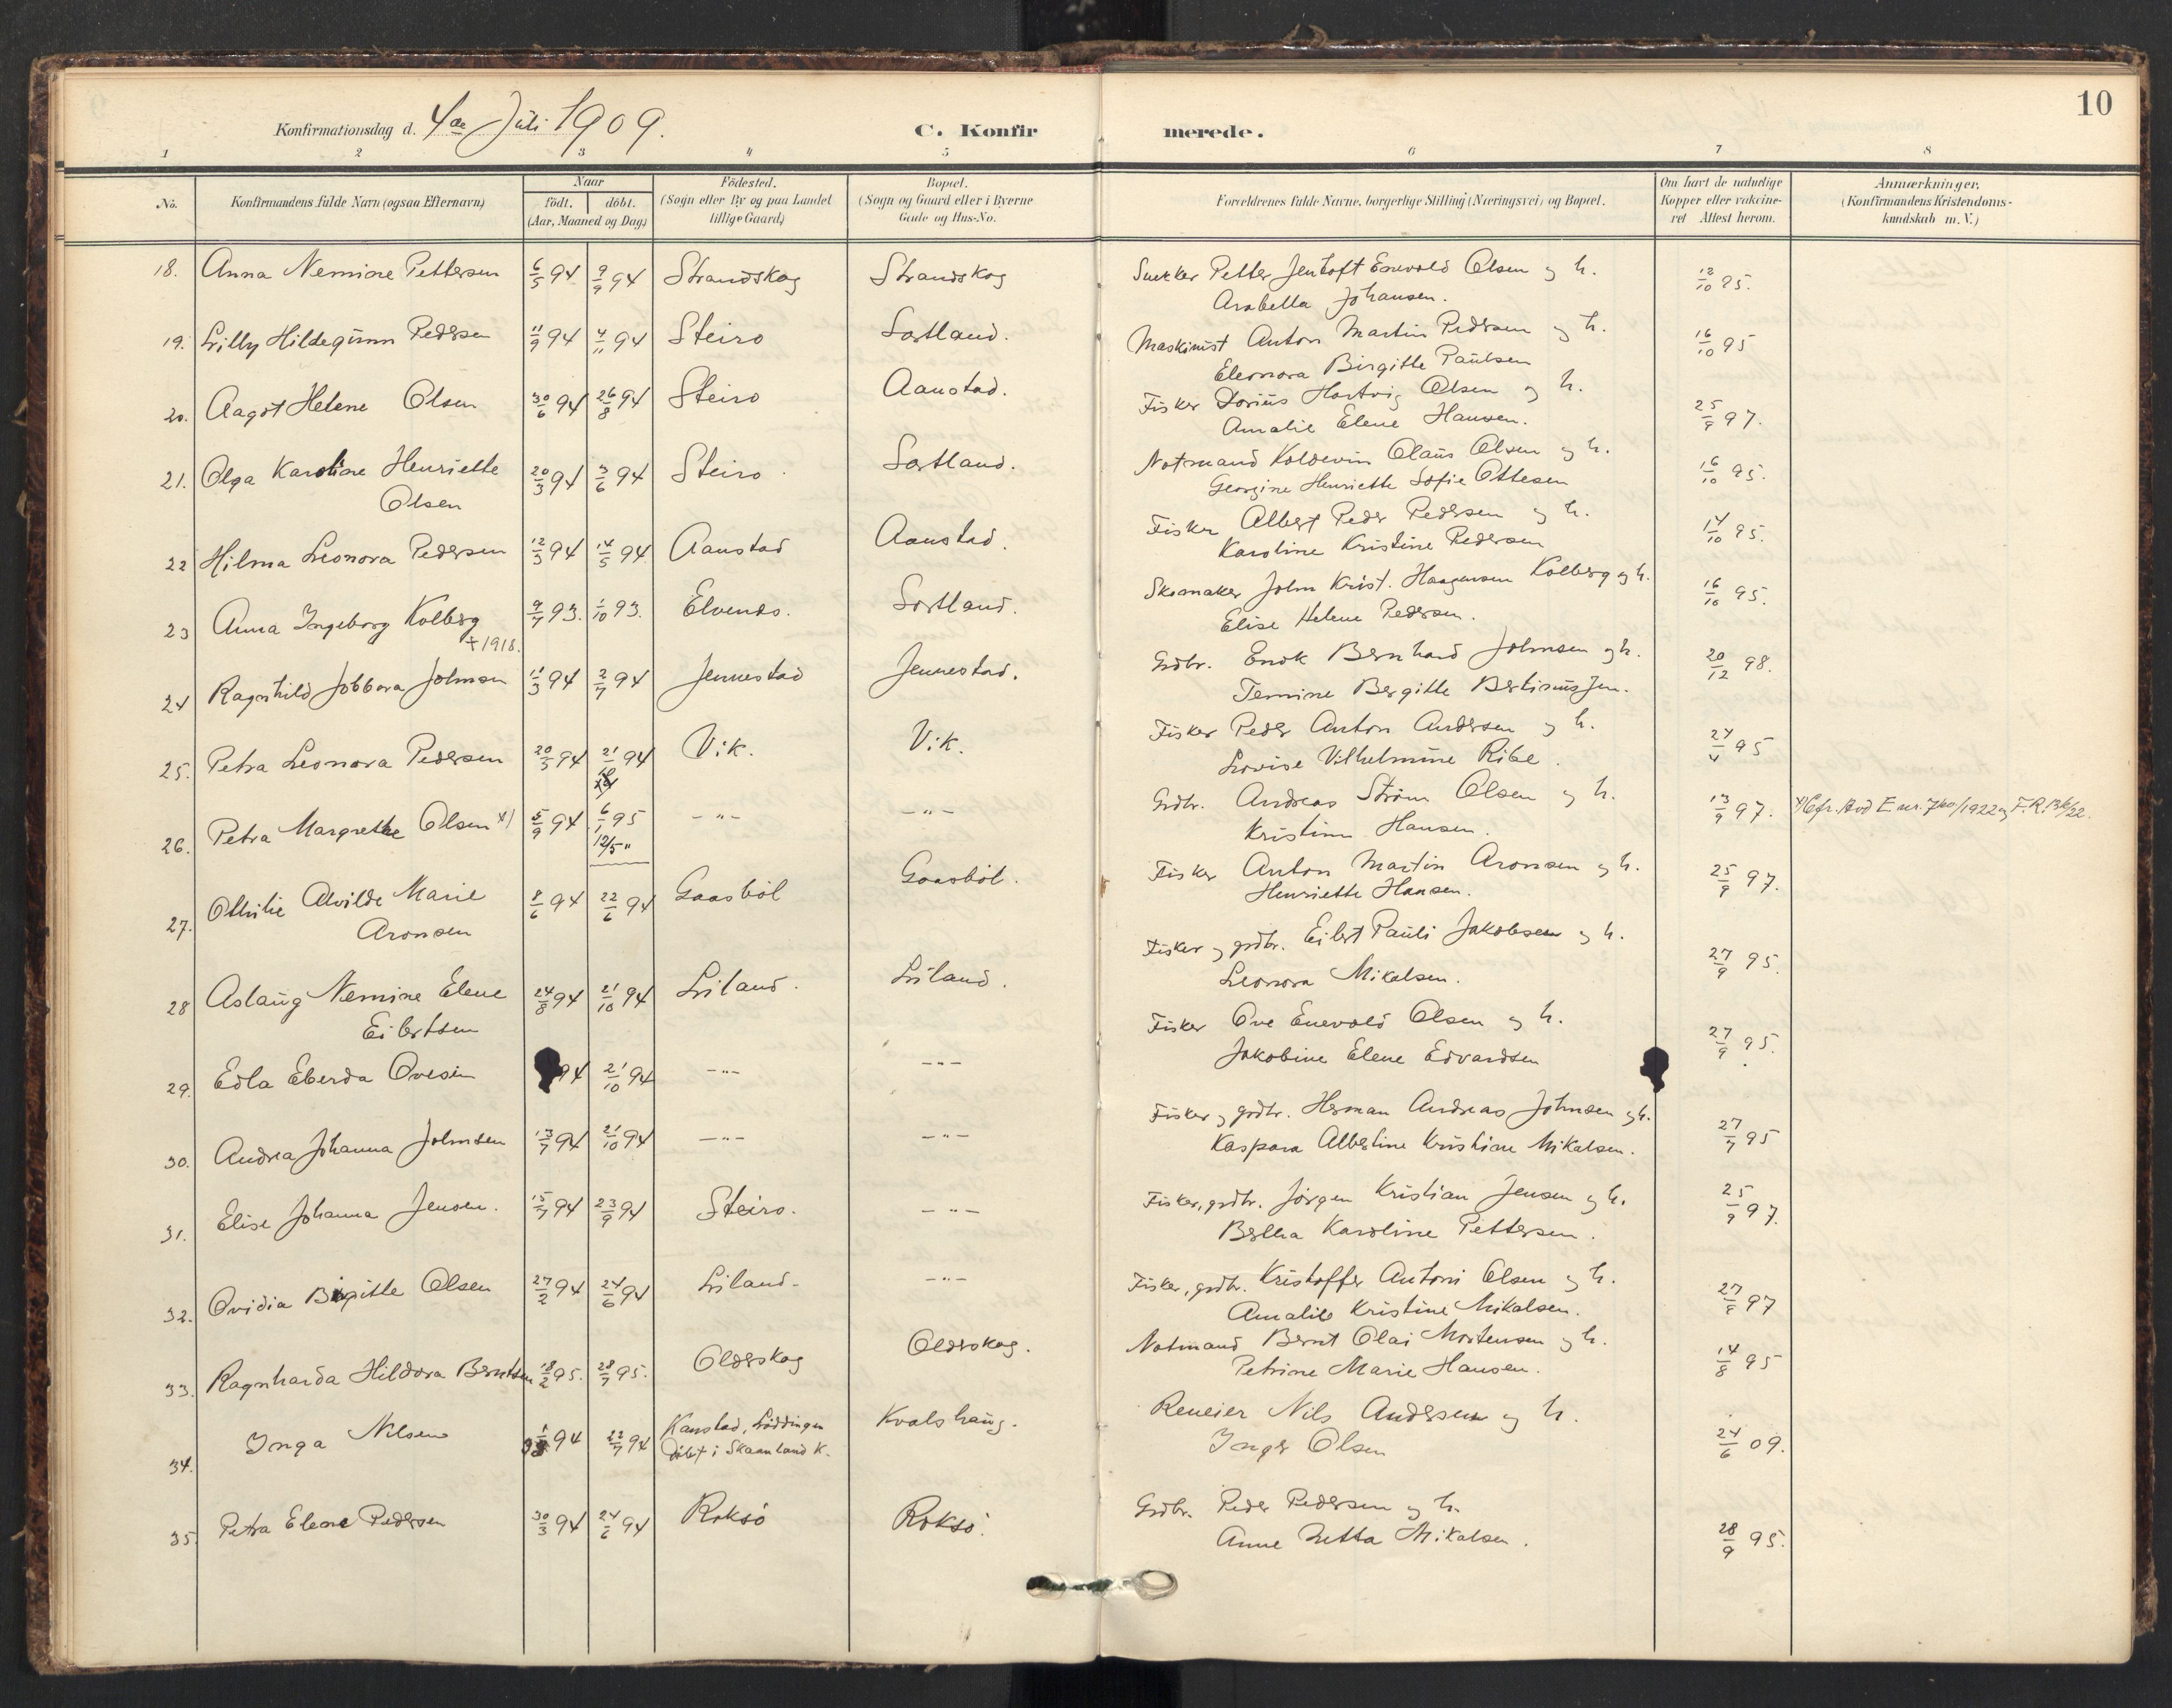 10
Konfirmationsdag d. 4de Juli 1909. C. Konfirmerede.
1 2 3 4 5 6 7 8
No. Konfirmandens fulde Navn (ogsaa Efternavn) Naar födt. döbt. (Aar, Maaned og Dag) Födested. (Sogn eller By og paa Landet tillige Gaard) Bopæl. (Sogn og Gaard eller i Byerne Gade og Hus-No. Forældrenes fulde Navne, borgerlige Stilling (Næringsvei) og Bopæl. Om havt de naturlige Kopper eller vakcineret Attest herom. Anmærkninger. (Konfirmandens Kristendomskundskab m. V.)
18. Anna Nemine Pettersen 6/5 94 9/9 94 Strandskog Strandskog Snekker Petter Jentoft Enevold Olsen og h. 12/10 95.
Arabella Johansen.
19. Lilly Hildegunn Pedersen 11/9 94 4/11 94 Steiro Sortland. Maskinist Anton Martin Pedersen og h. 16/10 95
Eleonora Birgitte Paulsen
20. Aagot Helene Olsen 30/6 94 26/8 94 Steiro Aanstad. Fisker Dorius Hartvig Olsen og h. 25/9 97.
Amalie Elene Hansen.
21. Olga Karoline Henriette 20/3 94 3/6 94 Steiro. Sortland. Notmand Koldevin Olaus Olsen og h. 16/10 95.
Olsen Georgine Henriette Sofie Ottesen
22 Hilma Leonora Pedersen 12/3 94 14/5 94 Aanstad Aanstad. Fisker Albert Peder Pedersen og h. 14/10 95.
Karoline Kristine Pedersen
23 Anna Ingeborg Kolberg 9/7 93. 1/10 93. Elvenes. Sortland. Skomaker John Krist. Haagensen Kolberg og h. 16/10 95.
+ 1918. Elise Helene Pedersen.
24 Ragnhild Jobbora Johnsen 11/3 94 2/7 94 Jennestad Jennestad. Grdbr. Enok Bernhard Johnsen og h. 20/12 98.
Temine Bergitte Bertinusjen.
25. Petra Leonora Pedersen 20/5 94 21/10 94 Vik. Vik. Fisker Peder Anton Andersen og h. 24/4 95
Lovise Vilhelmine Ribe.
26. Petra Margrethe Olsen x) 5/9 94 6/1 95 -"- -"- Grdbr. Andreas Ström Olsen og h. 13/9 97.
12/5 " Kristine Hansen.
27. Othilie Alvilde Marie 8/6 94 22/6 94 Gaasböl Gaasböl. Fisker Anton Martin Aronsen og h. 25/9 97.
Aronsen Henriette Hansen.
28 Aslaug Nemine Elene 24/8 94 21/10 94 Liland. Liland. Fisker og grdbr. Eilert Pauli Jakobsen og h. 27/9 95.
Eilertsen Leonora Mikalsen.
29. Edla Eberda Ovesen 94 21/10 94 -"- -"- Fisker Ove Enevold Olsen og h. 27/9 95.
Jakobine Elene Edvardsen
30. Andrea Johanna Johnsen 13/7 94 21/10 94 -"- -"- Fisker og grdbr. Herman Andreas Johnsen og h. 27/7 95
Kaspara Albertine Kristiane Mikalsen.
31. Elise Johanna Jensen. 15/7 94 23/9 94 Steiro. -"- Fisker, grdbr. Jörgen Kristian Jensen og h. 25/9 97.
Bertha Karoline Pettersen.
32. Ovidia Birgitte Olsen 27/2 94 24/6 94 Liland. -"- Fisker, grdbr. Kristoffer Antoni Olsen og h. 27/8 97
Amalie Kristine Mikalsen.
33. Ragnharda Hildora Berntsen 18/2 95. 28/7 95. Olderskog Olderskog. Notmand Bernt Olai Mortensen og h. 14/8 95
Petrine Marie Hansen.
34. Inga Nilsen 94 22/7 94 Kanstad, Löddingen Kvalshaug. Reneier Nils Andersen og h. 24/6 09.
Döbt i Skaanland K. Inger Olsen
35. Petra Elene Pedersen 30/3 94 24/6 94 Roksö Roksö. Grdbr. Peder Pedersen og h. 28/9 95.
Anne Zetta Mikalsen.